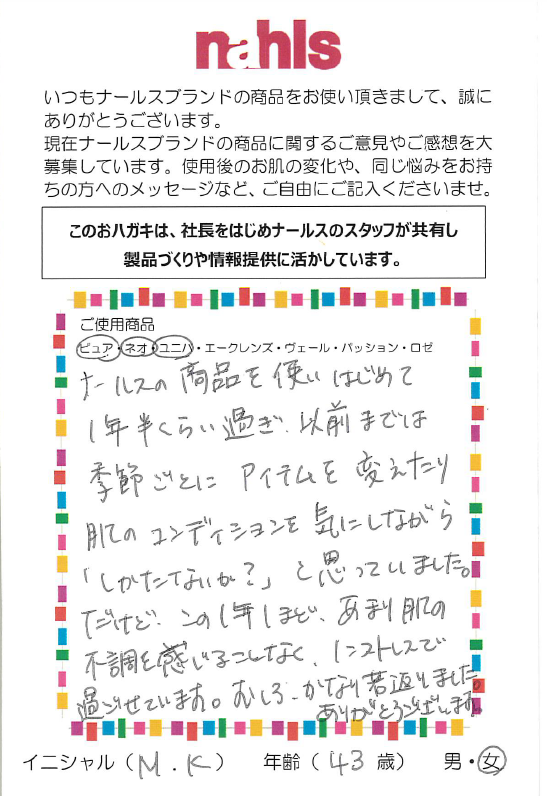 nahls
いつもナールスブランドの商品をお使い頂きまして、誠に
ありがとうございます。
現在ナールスブランドの商品に関するご意見やご感想を大
募集しています。使用後のお肌の変化や、同じ悩みをお持
ちの方へのメッセージなど、ご自由にご記入くださいませ。
このおハガキは、社長をはじめナールスのスタッフが共有し
製品づくりや情報提供に活かしています。
ご使用商品
ピュア・ネオ・ユニバ・エークレンズ・ヴェール・パッション・ロゼ
ナールスの商品を使いはじめて
1年半くらい過ぎ、以前までは
季節ごとにアイテムを変えたり
肌のコンディションを気にしながら
「しかたないか?」と思っていました。
だけど、この1年ほど、あまり肌の
不調を感じることなく、ノンストレスで
過ごせています。むしろ、かなり若返りました。
ありがとうございます。
イニシャル（M.K） 年齢（43歳） 男・女